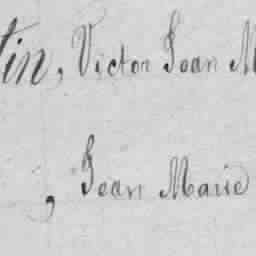 tin, Victor Jean M
, Jean Marie